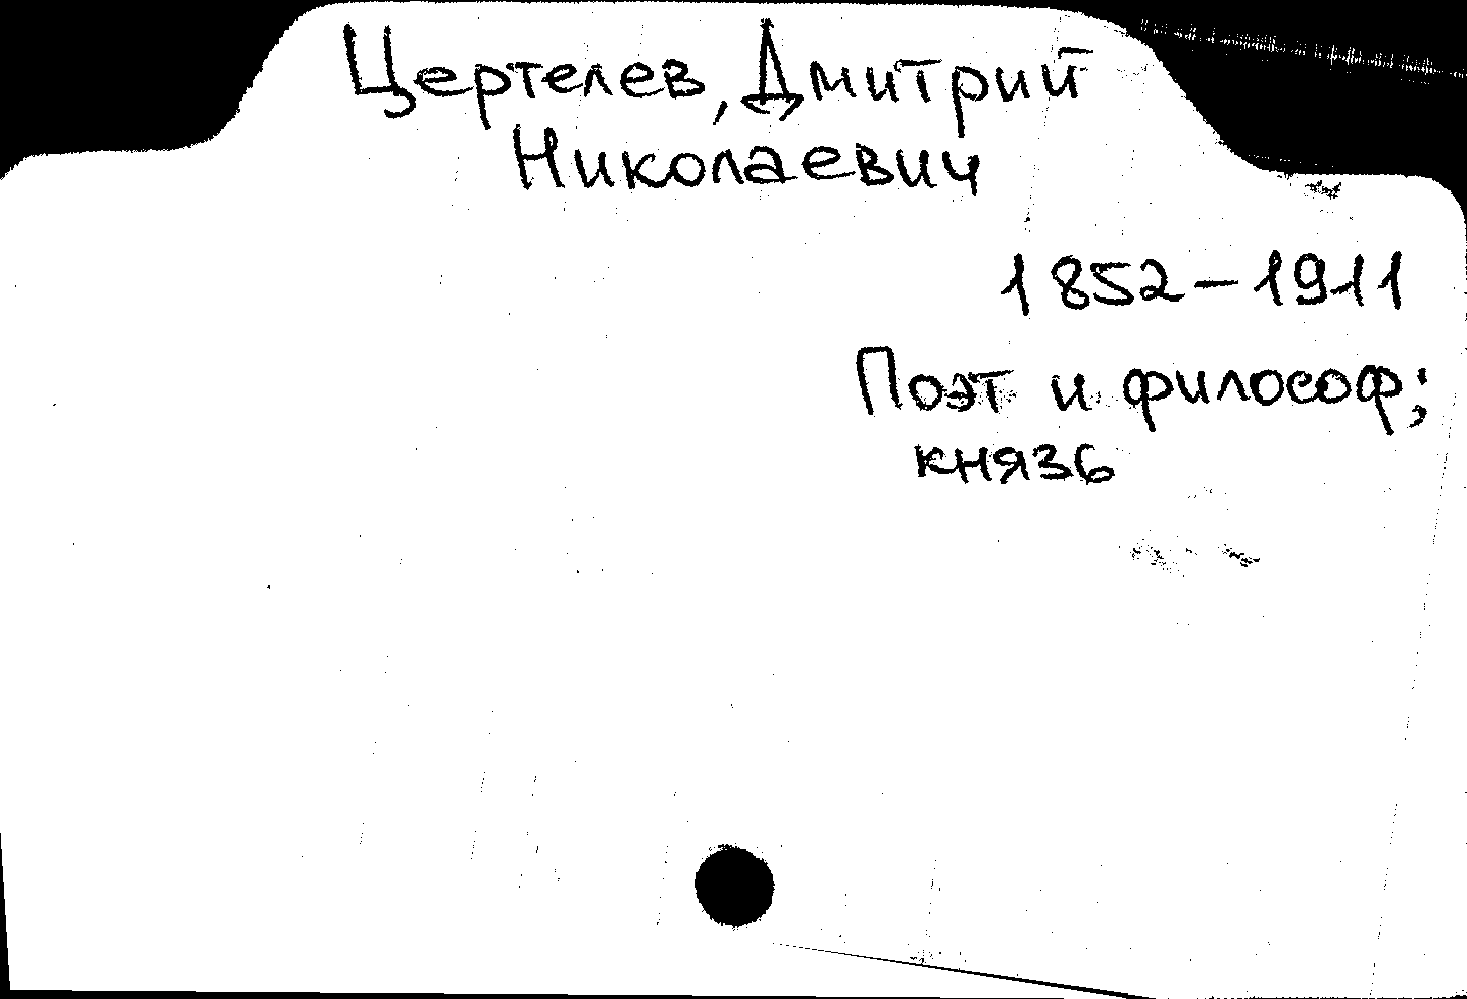 Цертелев, Дмитрий
Николаевич
1852-1911
Поэт и философ;
князь